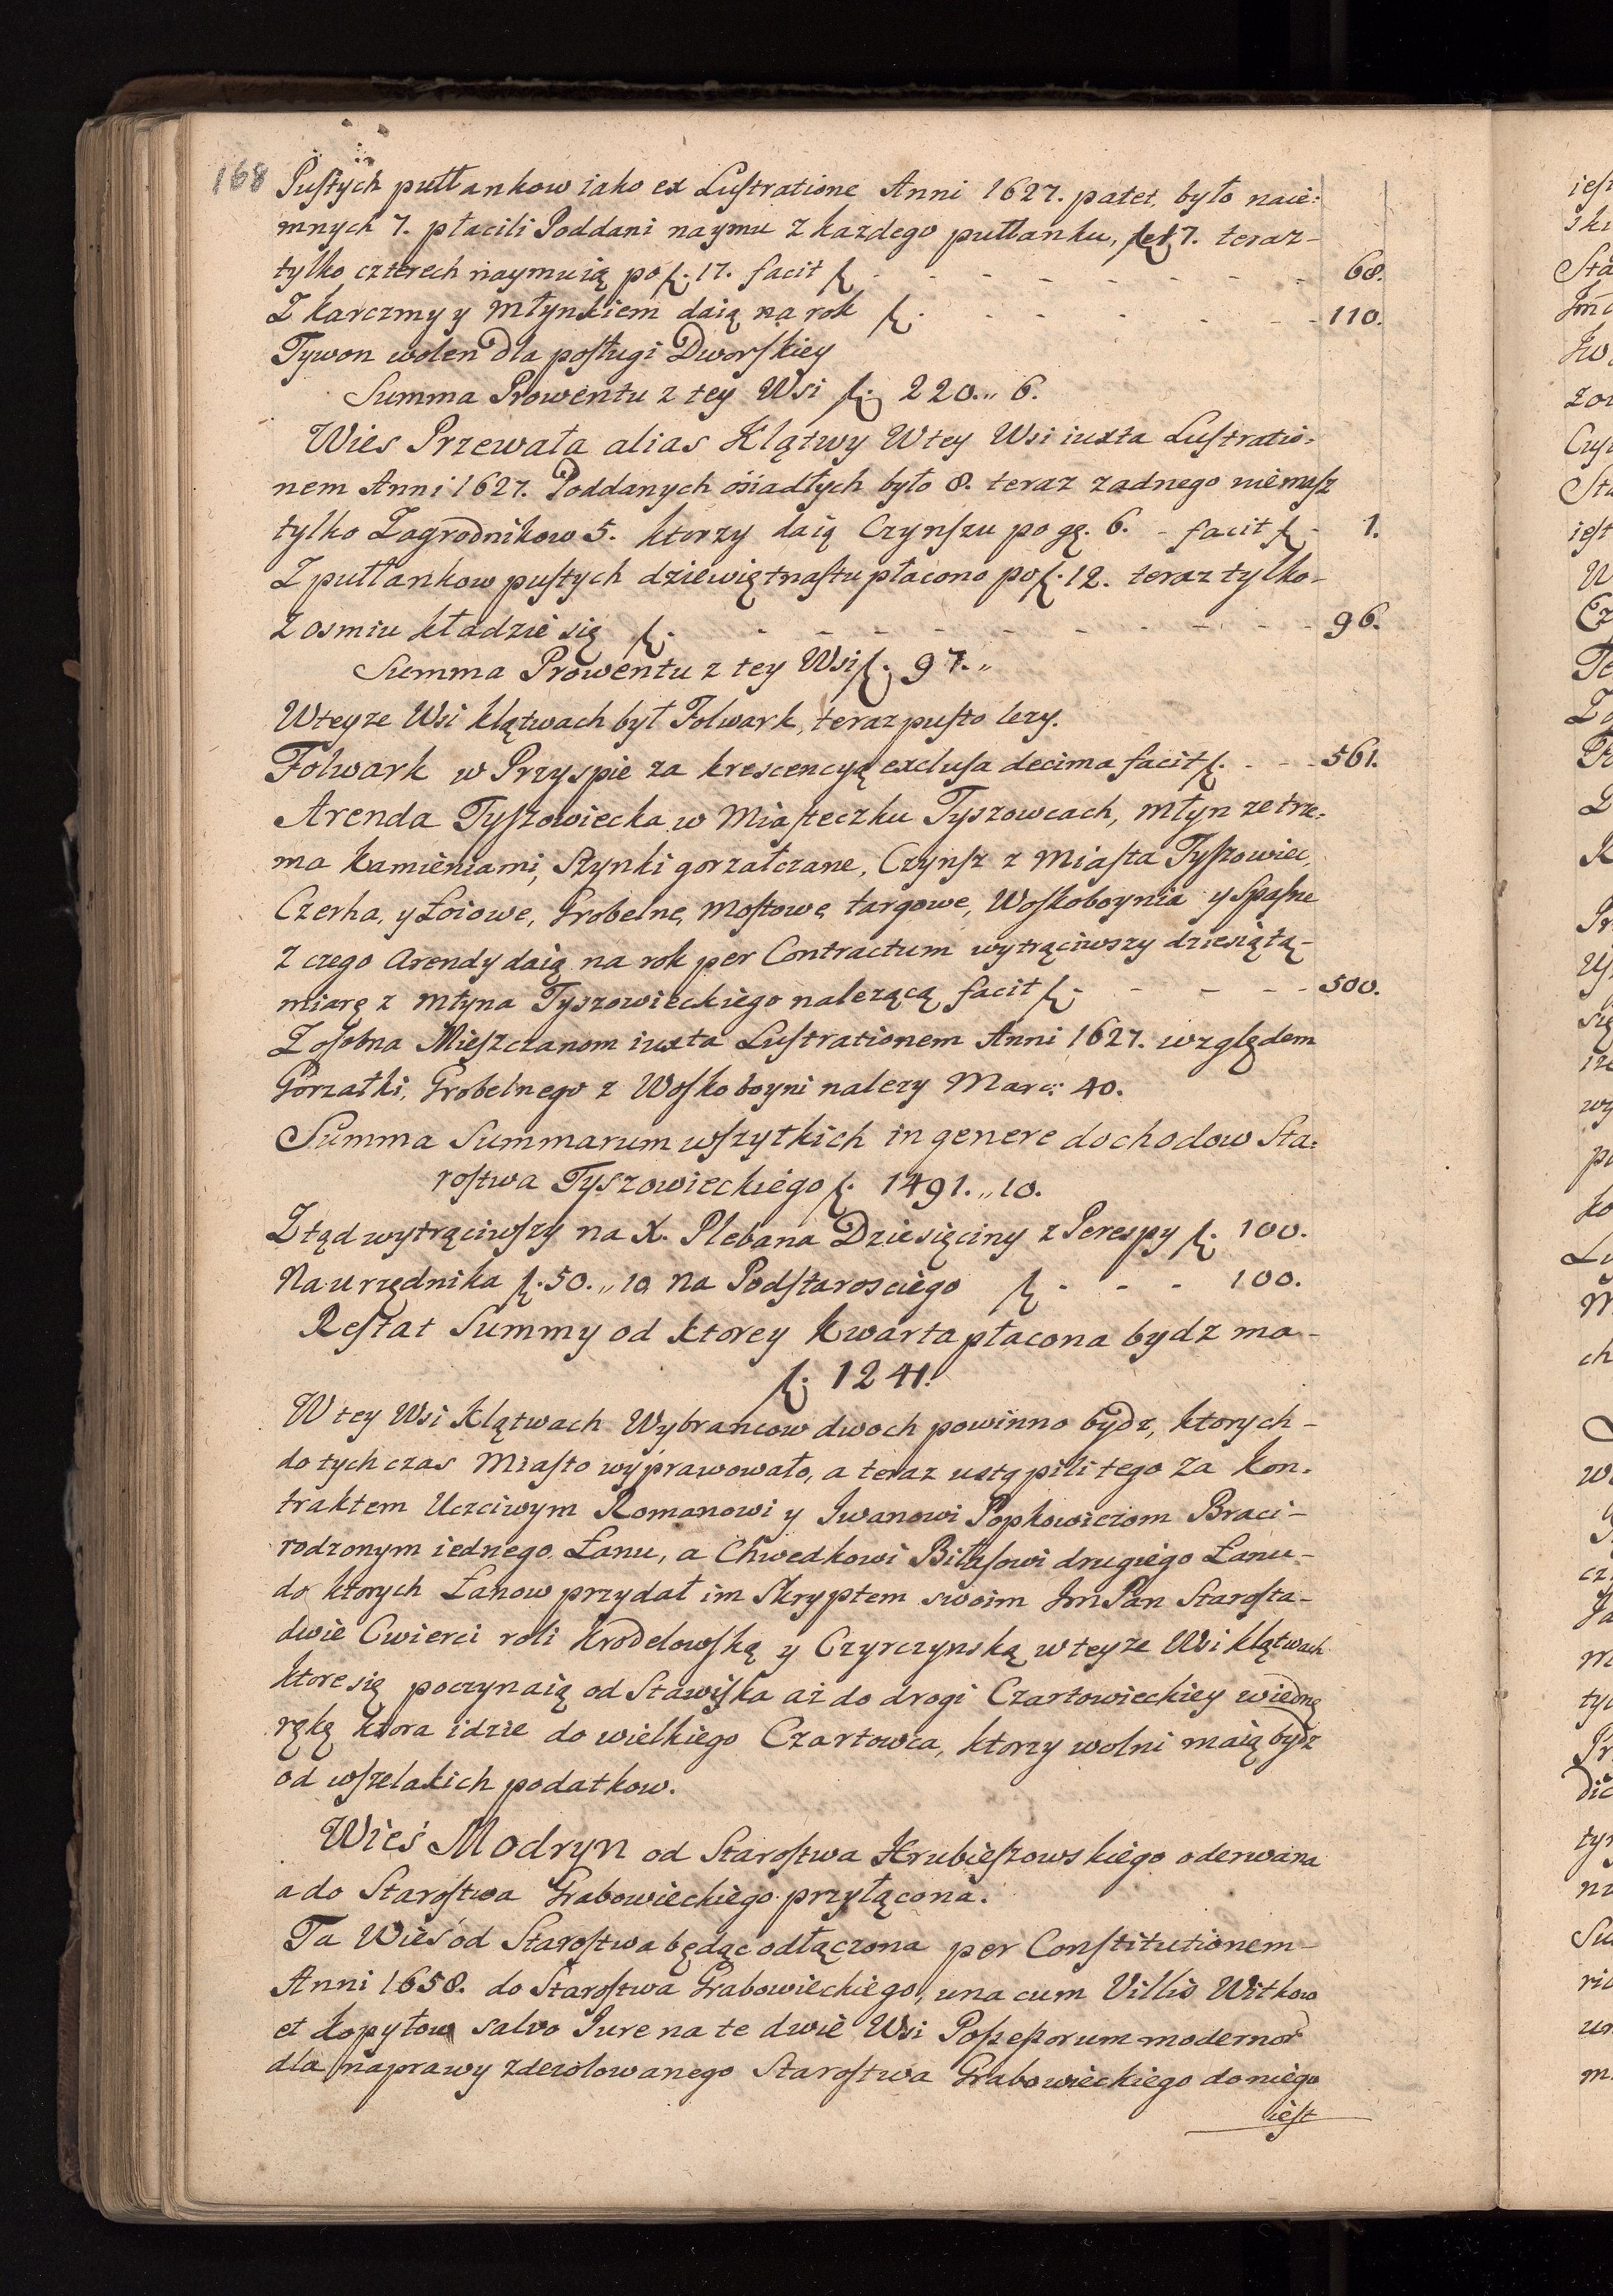 168
Pustych pułłankow iako ex Lustratione Anni 1627. patet, było naie:
mnych 7. płacili Poddani naymu z kazdego pułłanku, 7. teraz-
tylko czterech naymuią po f. 17. facit f. - - - - - - - 68.
Z karczmy y młynkiem daią na rok f. - - - - - 110.
Tywon wolen dla posługi Dworskiey
Summa Prowentu z tey Wsi f. 220.,, 6.
Wies Przewała alias Klątwy W tey Wsi iuxta Lustratio=
nem Anni 1627. Poddanych ośiadłych było 8. teraz zadnego niemasz
tylko Zagrodnikow 5. ktorzy daią Czynszu po gę. 6. - facit f. - 1.
Z pułłankow pustych dziewiętnastu płacono po f. 12. teraz tylko-
z osmiu kładzie się f. - - - - - - - - - 96.
Summa Prowentu z tey Wsi f. 97.,,
W teyze Wsi klątwach był Folwark, teraz pusto lezy.
Folwark w Przyspie za krescencyą exclusa decima facit f. - - - 561.
Arenda Tyszowiecka w Miasteczku Tyszowcach, młyn ze trze=
ma kamieniami, Szynki gorzałczane, Czynsz z Miasta Tyszowiec,
Czerha, y Łoiowe, Grobelne, mostowe targowe, Woskoboynia y Spasne
z czego Arendy daią na rok per Contractum wytrąciwszy dziesiątą-
miarę z młyna Tyszowieckiego nalezącą facit f. - - - - - 500.
Z osobna Mieszczanom iuxta Lustrationem Anni 1627. względem
Gorzałki, Grobelnego z Woskoboyni nalezy Marc: 40.
Summa Summarum wszytkich in genere dochodow Sta=
rostwa Tyszowieckiego f. 1491.,, 10.
Ztąd wytrąciwszy na X. Plebana Dziesięciny z Perespy f. 100.
Na urzędnika f. 50.,, 10. na Podstarosciego f. - - - 100.
Restat Summy od ktorey kwarta płacona bydz ma-
f. 1241.
W tey Wsi Klątwach Wybrancow dwoch powinno bydz, ktorych-
do tych czas Miasto wyprawowało, a teraz ustąpili tego za kon=
traktem Uczciwym Romanowi y Iwanowi Popkowiczom Braci-
rodzonym iednego Łanu, a Chwedkowi Bitasowi drugiego Łanu-
do ktorych Łanow przydał im Skryptem swoim Jm Pan Starosta-
dwie Cwierci roli Krodelowską y Czyrczynską w teyze Wsi klątwach
ktore się poczynaią od Stawiska aż do drogi Czartowieckiey wiednę
rękę ktora idzie do wielkiego Czartowca, ktorzy wolni maią bydz
od wszelakich podatkow.
Wieś Modryn od Starostwa Hrubieszowskiego oderwana
a do Starostwa Grabowieckiego przyłącona.
Ta Wieś od Starostwa będąc odłączona per Constitutionem-
Anni 1658. do Starostwa Grabowieckiego, una cum Villis Witkow
et Kopyłow salvo Iure na te dwie Wsi Poszeszorum modernor
dla naprawy zdezolowanego Starostwa Grabowieckiego do niego
iest